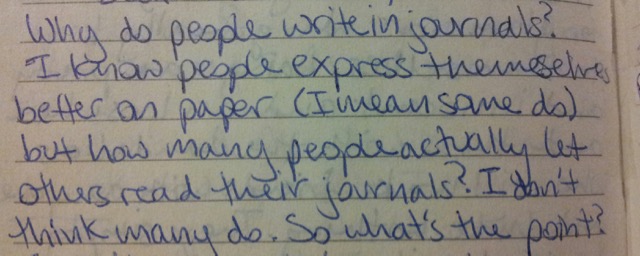 Why do people write in journals?
I know people express themselves
better on paper (I mean some do)
but how many people actually let
others read their journals? I don't
think many do. So what's the point?